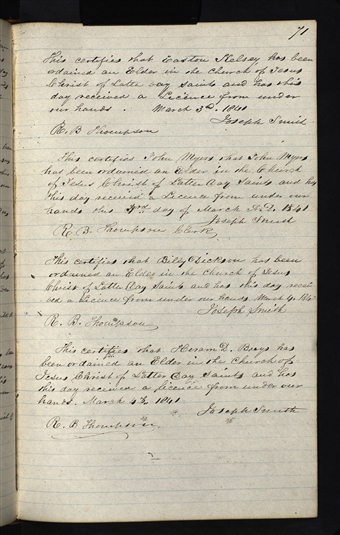 71
This certifies that Easton Kelsey has been
ordained an Elder in the Church of Jesus
Christ of Latter Day Saints and has this
day received a Licence from under
our hands. March 3d. 1841
Joseph Smith
R. B. Thompson
This certifies John Myers that John Myers
has been ordained an Elder in the Church
of Jesus Christ of Latter Day Saints and has
this day received a Licence from under our
hands this day of March A.D. 1841
Joseph Smith
R. B. Thompson Clerk
This certifies that Billy Dickson has been
ordained an Elder in the Church of Jesus
Christ of Latter Day Saints and has this day recei
ved a Licence from under our hands March 4. 184
Joseph Smith
R. B. Thompson
This certifies that Hiram D. Buys has
been ordained an Elder in the Church of
Jesus Christ of Latter Day Saints and has
this day received a licence from under our
hands. March 4 1841.
Joseph Smith
R. B Thompson